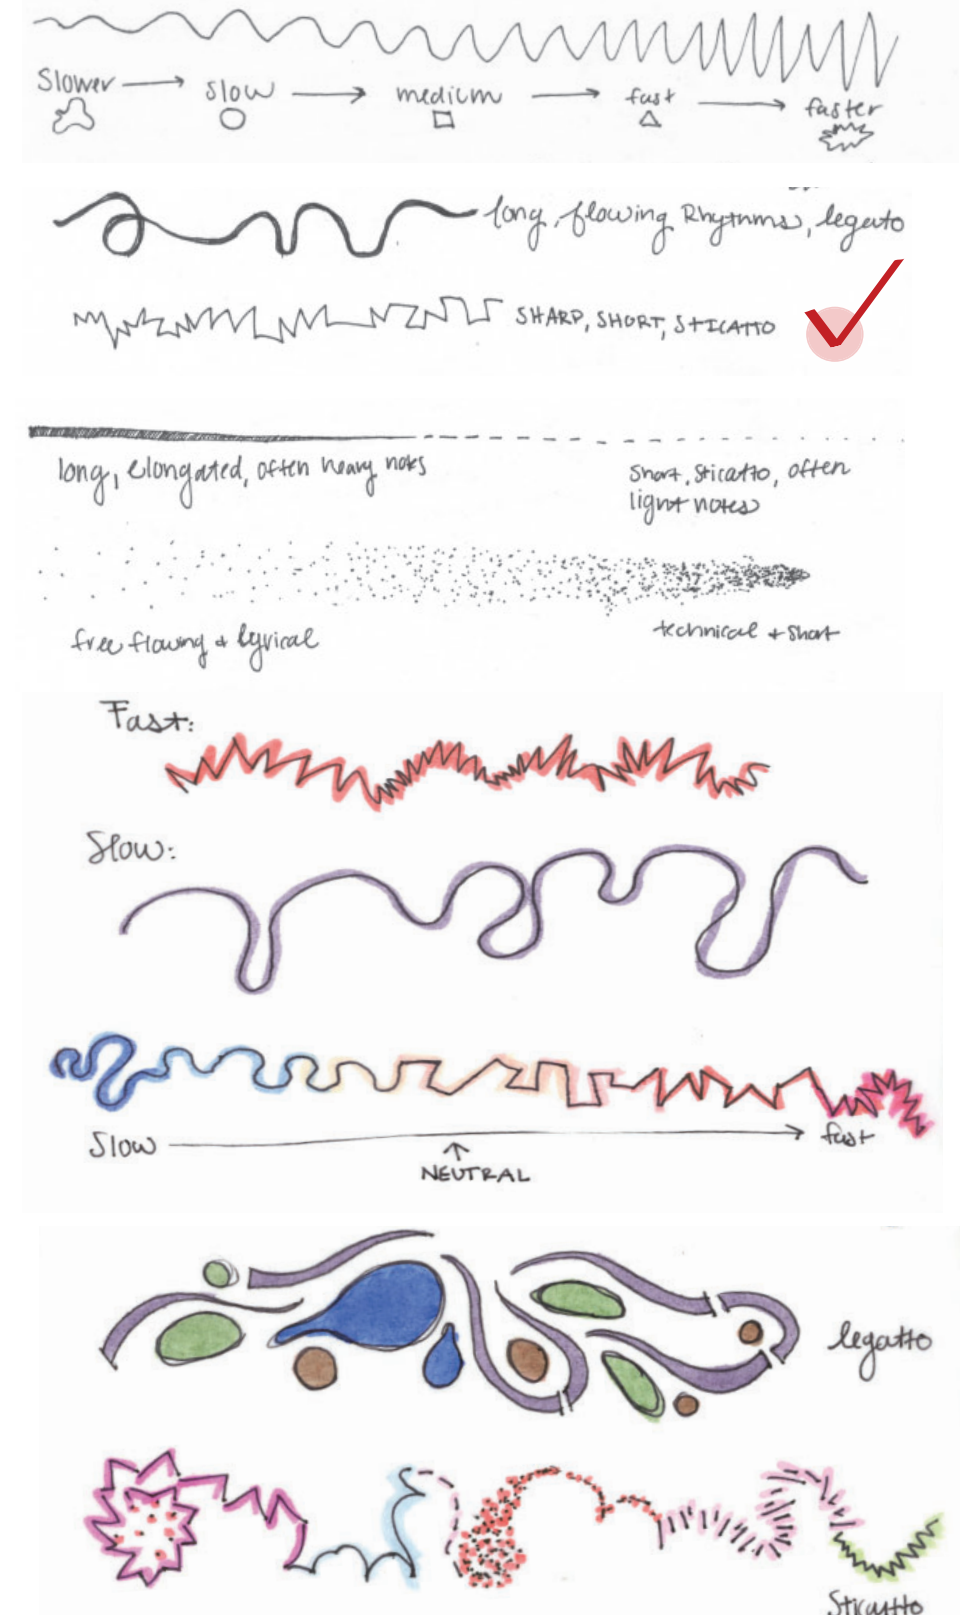 Slower → slow → medium → fast → faster
long, flowing Rhythms, legato
SHARP, SHORT, STICATTO
long, elongated, often heavy notes
Short, Sticatto, often
light notes
free flowing + lyrical
technical + short
Fast:
Slow:
Slow → fast
↑
NEUTRAL
legatto
Sticatto